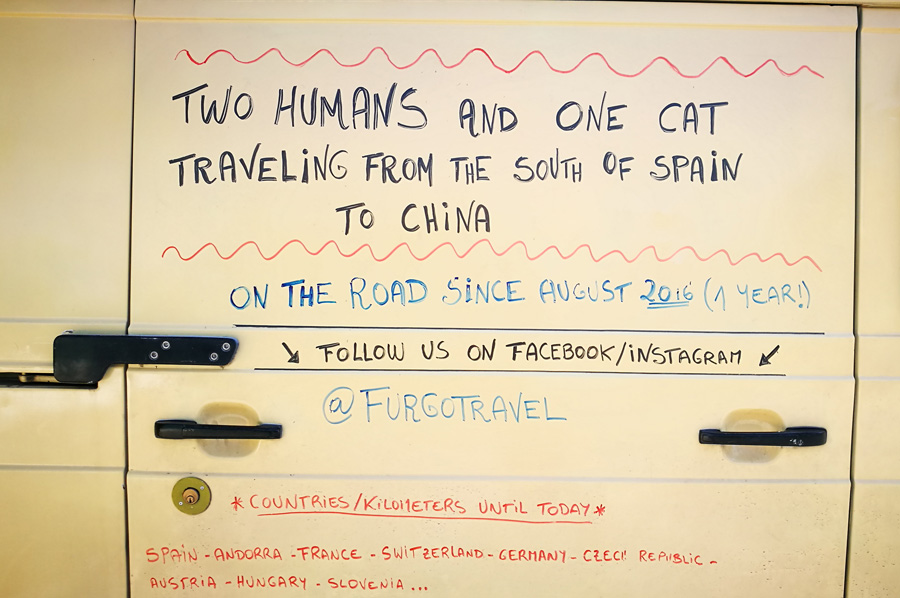 TWO HUMANS AND ONE CAT
TRAVELiNG FROM THE SOUTH OF SPAiN
TO CHiNA
ON THE ROAD SiNCE AUGUST 2016 (1 YEAR!)
↘ FOLLOW US ON FACEBOOK/iNSTAGRAM ↙
@FURGOTRAVEL
*COUNTRiES/KiLOMETERS UNTiL TODAY*
SPAiN - ANDORRA - FRANCE - SWiTZERLAND - GERMANY - CZECH REPUBLIC -
AUSTRiA - HUNGARY - SLOVENiA ...